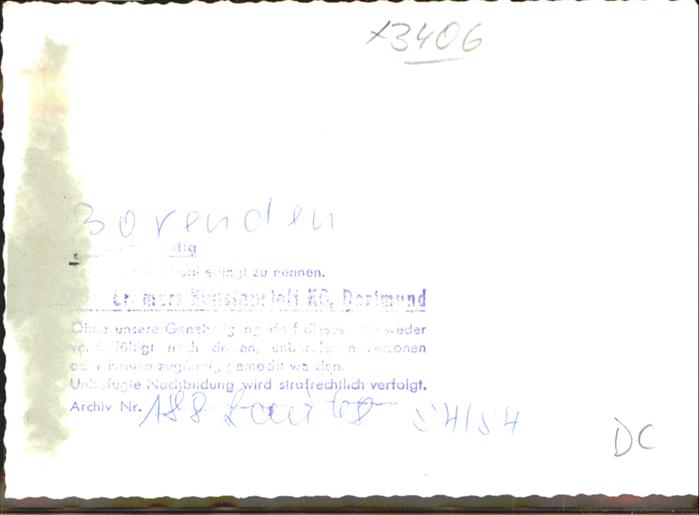 x3406
Borenden
unbedingt zu nennen.
Cramers Kunstanstalt KG, Dortmund
Ohne unsere Genehmigung darf dieses weder
vervielfältigt noch dritten, unberufenen Personen
oder Firmen zugängig gemacht werden.
Unbefugte Nachbildung wird strafrechtlich verfolgt.
Archiv Nr. 188 54/54
DC